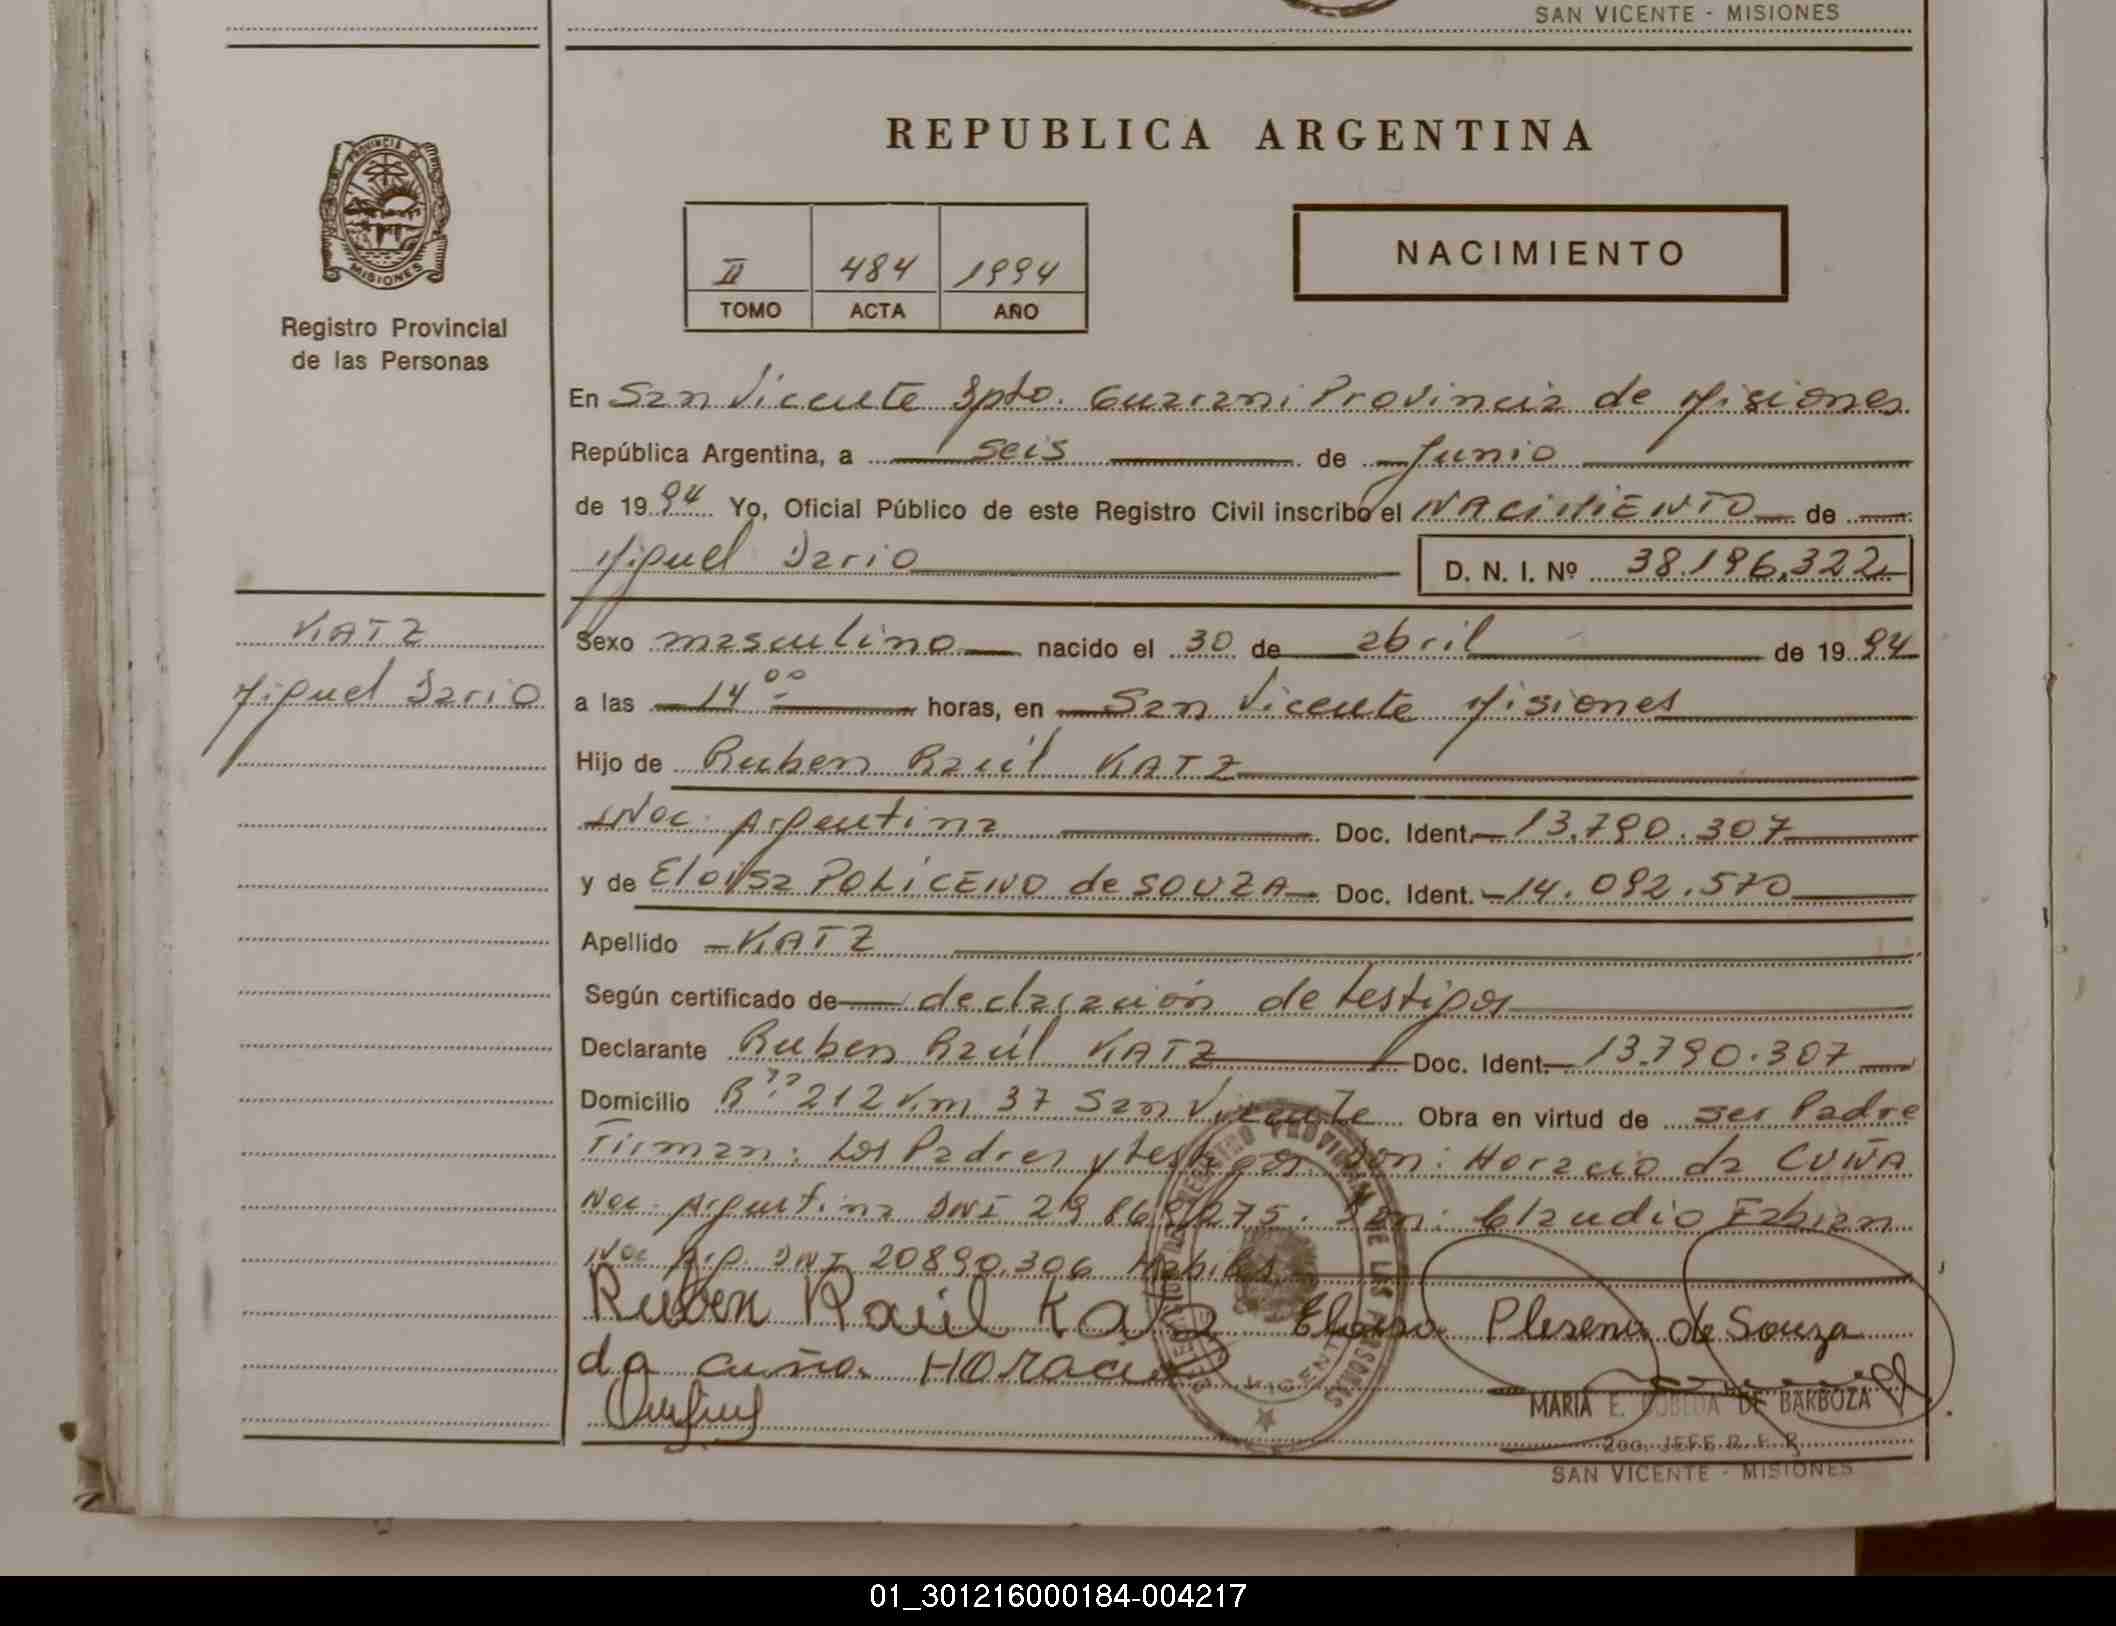 SAN VICENTE - MISIONES
REPUBLICA ARGENTINA
PROVINCIA DE
MISIONES
Registro Provincial
de las Personas
II 484 1994
TOMO ACTA AÑO
NACIMIENTO
En San Vicente Dpto. Guarani Provincia de Misiones
República Argentina, a seis de Junio
de 1994 Yo, Oficial Público de este Registro Civil inscribo el NACIMIENTO de
Miguel Dario D. N. I. Nº 38.196.322
KATZ
Miguel Dario
Sexo masculino nacido el 30 de abril de 1994
a las 14 00 horas, en San Vicente Misiones
Hijo de Ruben Raúl KATZ
Nac. Argentina Doc. Ident. 13.790.307
y de Eloisa POLICENO de SOUZA Doc. Ident. 14.092.570
Apellido KATZ
Según certificado de declaración de testigos
Declarante Ruben Raúl KATZ Doc. Ident. 13.790.307
Domicilio 212 Km 37 San Vicente Obra en virtud de ser Padre
Firman: Los Padres y testigos Don: Horacio da CUÑA
Nac. Argentina DNI Don: Claudio Fabian
Nac Arg. DNI 20890.306 Habiles
Ruben Raúl Katz Eloisa de Souza
da cuña Horacio
MARIA E. DE BARBOZA
2do. JEFE R. P. P.
SAN VICENTE - MISIONES
01_301216000184-004217